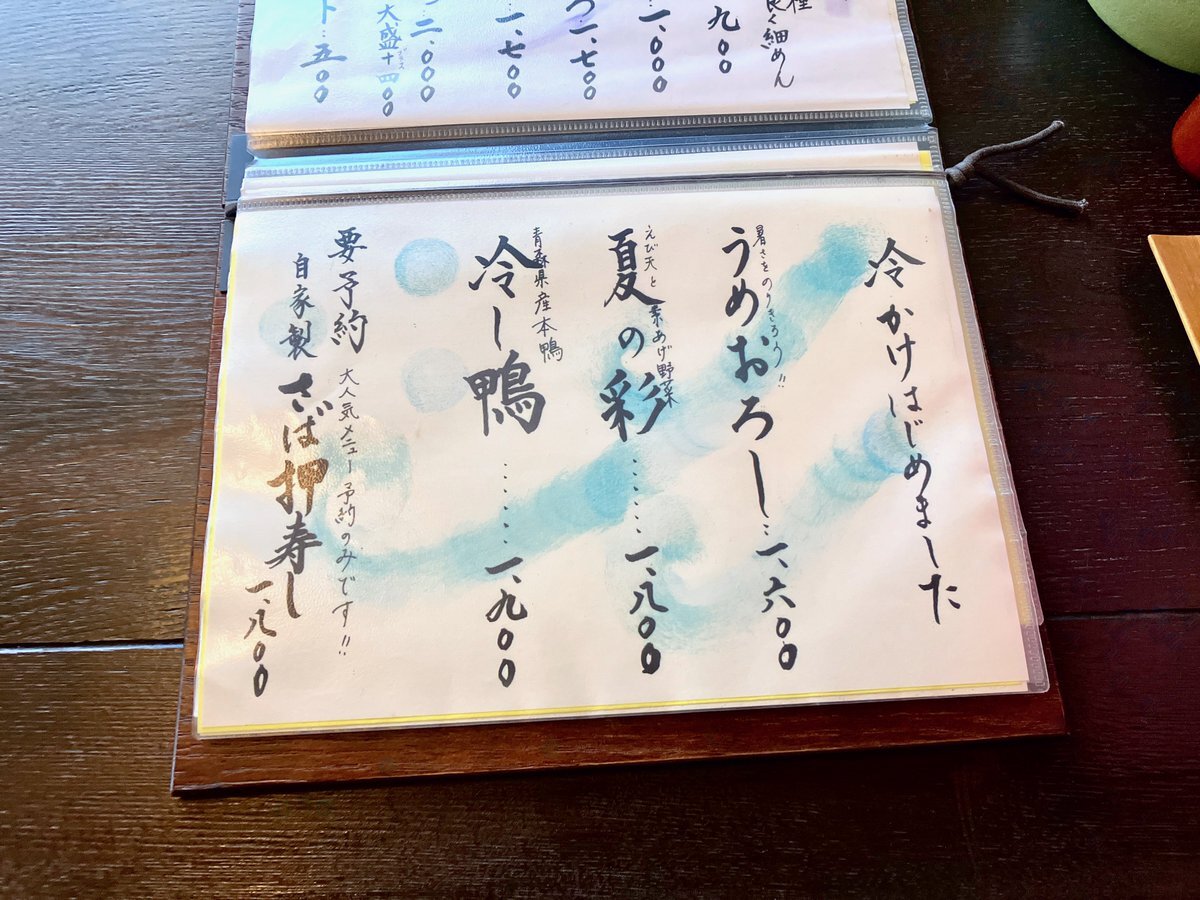 良く細めん
九〇〇
一、〇〇〇
一、七〇〇
一、七〇〇
二、〇〇〇
大盛＋四〇〇
プラス
ト…五〇〇
冷かけはじめました
暑さをのりきろう!!
うめおろし…一、六〇〇
えび天と素あげ野菜
夏の彩……一、八〇〇
青森県産本鴨
冷し鴨……一、九〇〇
要予約 大人気メニュー予約のみです!!
自家製さば押寿し
一、八〇〇